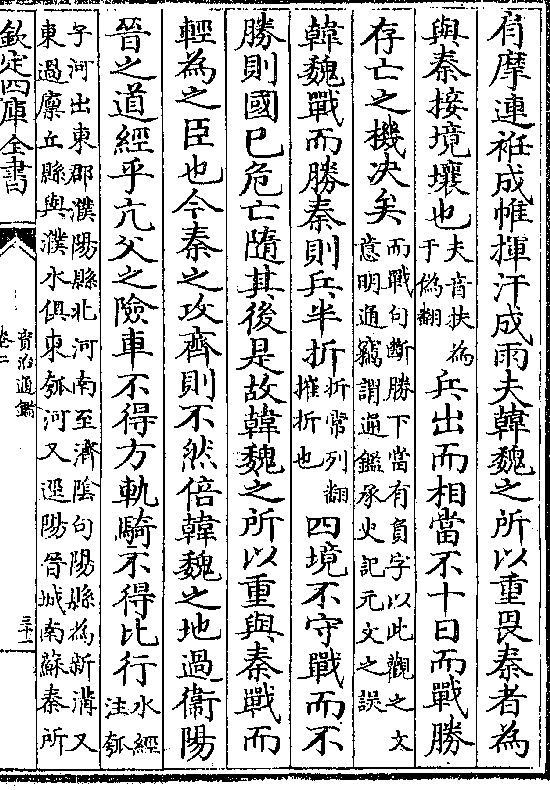 肩摩連袵成帷揮汗成雨夫韓魏之所以重畏秦者為
與秦接境壤也夫音扶為于偽翻兵出而相當不十日而戰勝
存亡之機决矣而戰句斷勝下當有負字以此觀之文意明通竊謂通鑑承史記元文之誤
韓魏戰而勝秦則兵半折折常列翻摧折也四境不守戰而不
勝則國已危亡隨其後是故韓魏之所以重與秦戰而
輕為之臣也今秦之攻齊則不然倍韓魏之地過衞陽
晉之道經乎亢父之險車不得方軌騎不得比行水經注瓠
子河出東郡濮陽縣北河南至濟陰句陽縣為新溝又
東過廪丘縣與濮水俱東瓠河又逕陽晉城南蘇秦所
欽定四庫全書
資治通鑑
卷二
三十二